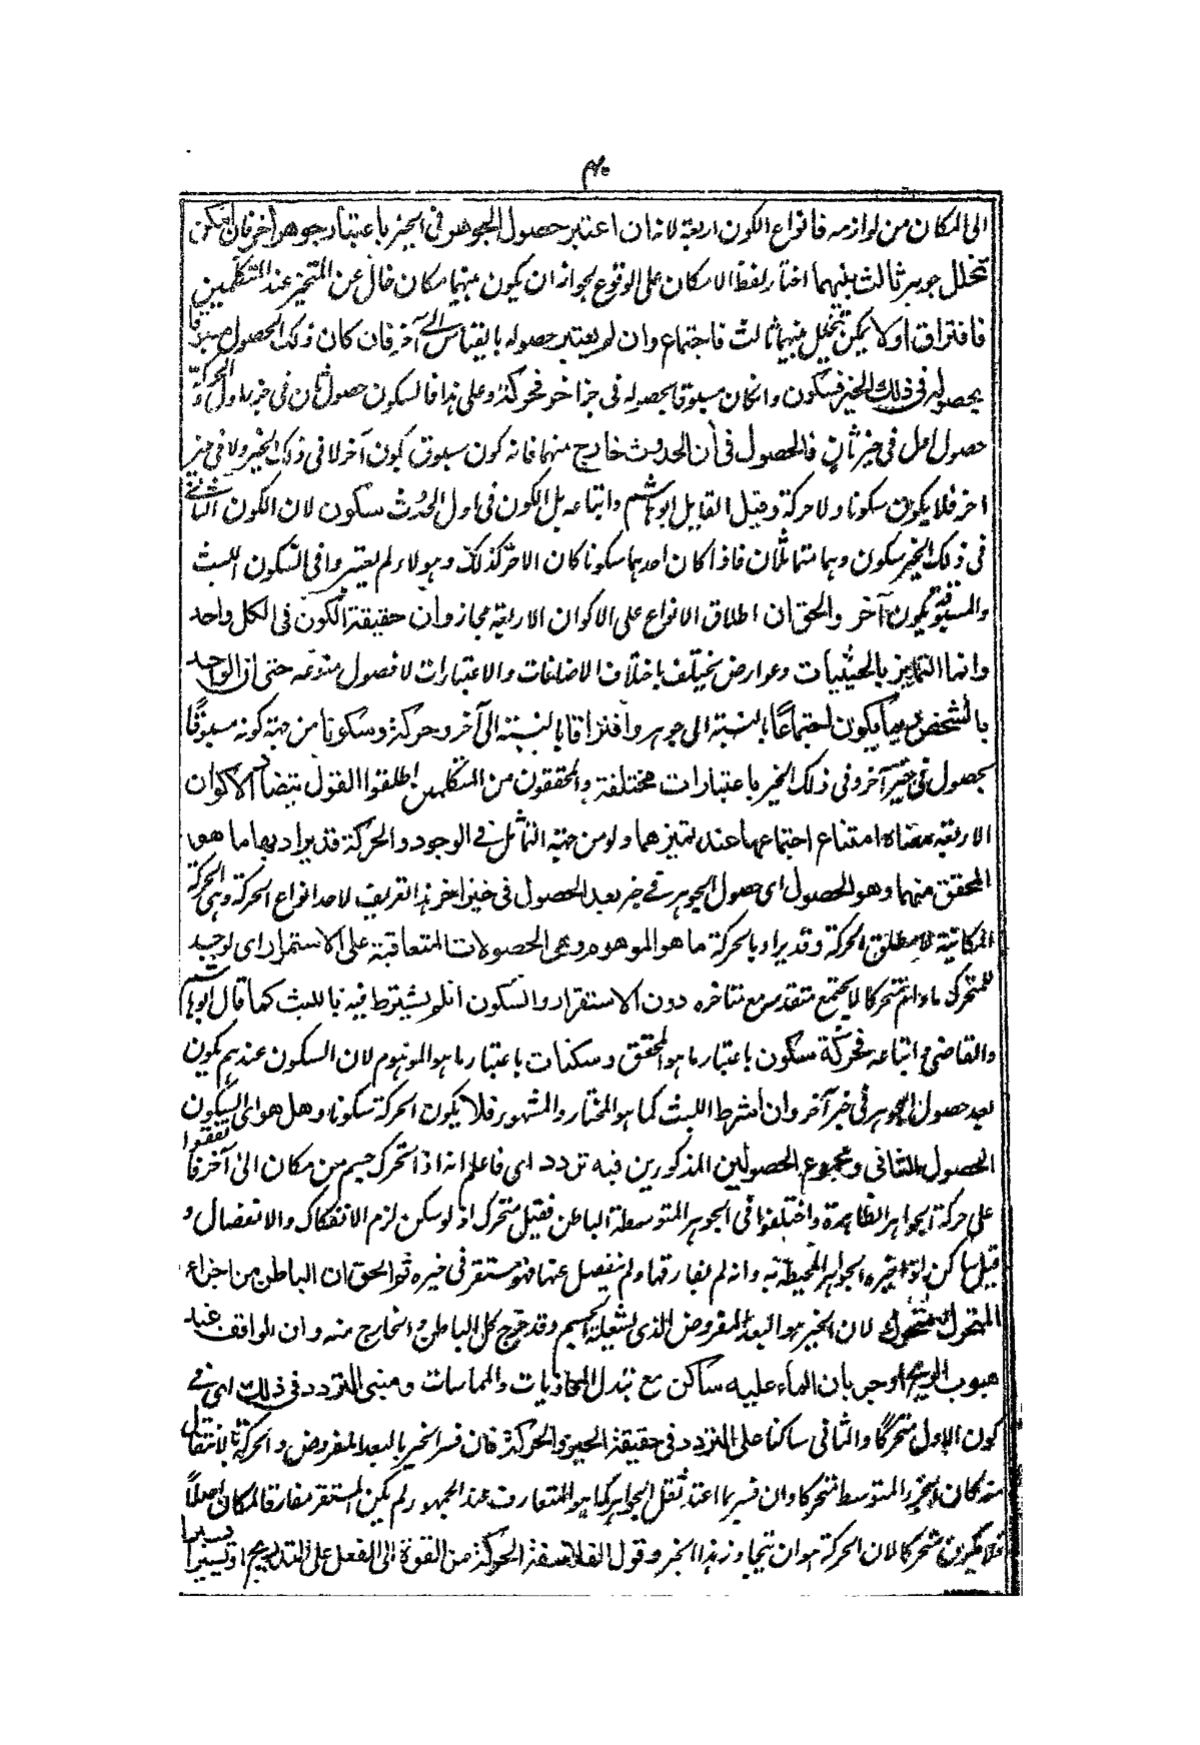 ۴۰
الى المكان من لوازمه فانواع الكون اربعة لانه ان اعتبر حصول الجوهر فى الحيز باعتبار جوهر آخر فان امكن
تخلل جوهر ثالث بينهما اختار لفظ الامكان على الوقوع لجواز ان يكون بينهما مكان خال عن المتحيز عند المتكلمين
فافتراق اولا يمكن تخلل بينهما ثالث فاجتماع وان لم يعتبر حصوله بالقياس الى آخر فان كان ذلك الحصول مسبوقا
بحصوله فى ذلك الحيز فسكون وانكان مسبوقا بحصوله فى حيز آخر فحركة وعلى هذا فالسكون حصول ثان فى حيز اول والحركة
حصول اول فى حيز ثان فالحصول فى آن الحدوث خارج منهما فانه كون مسبوق بكون آخر لا فى ذلك الحيز ولا فى حيز
اخر فلا يكون سكونا ولا حركة وقيل القايل ابو هاشم واتباعه بل الكون فى اول الحدوث سكون لان الكون الثانى
فى ذلك الحيز سكون وهما متماثلان فاذا كان احدهما سكونا كان الاخر كذلك وهولاء لم يعتبروا فى السكون اللبث
والمسبوقية بكون آخر والحق ان اطلاق الانواع على الاكوان الاربعة مجاز وان حقيقة الكون فى الكل واحد
وانما التمايز بالحيثيات وعوارض يختلف باختلاف الاضافات والاعتبارات لا فصول منوعه حتى ان الواحد
بالشخص يكون اجتماعًا بالنسبة الى جوهر وافتراقا بالنسبة الى آخر وحركة وسكونا من جهة كونه مسبوقًا
بحصول فى حيز آخر وفى ذلك الحيز باعتبارات مختلفة والمحققون من المتكلمين اطلقوا القول بتضاد الاكوان
الاربعة معناه امتناع اجتماعها عند تميزها ولو من جهة التماثل فى الوجود والحركة قد يراد بها ما هو
المحقق منهما وهو الحصول اى حصول الجوهر فى حيز بعد الحصول فى حيز اخر هذا تعريف لاحد انواع الحركة وهى الحركة
المكانية لا مطلق الحركة وقد يراد بالحركة ما هو الموهوم وهى الحصولات المتعاقبة على الاستمرار اى توجد
للمتحرك ما دام متحركا لا يجتمع متقدمه مع متاخره دون الاستقرار والسكون ان لم يشترط فيه باللبث كما قال ابو هاشم
والقاضى واتباعه فحركة سكون باعتبار ما هو المحقق وسكنات باعتبار ما هو الموهوم لان السكون عندهم كون
بعد حصول الجوهر فى حيز آخر وان اشترط اللبث كما هو المختار والمشهور فلا يكون الحركة سكونا وهل هو اى السكون
الحصول الثانى و مجموع الحصولين المذكورين فيه تردد اى فاعلم انه اذا تحرك جسم من مكان الى آخر فاتفقوا
على حركة الجواهر الظاهرة واختلفوا فى الجوهر المتوسطة الباطن فقيل متحرك اذ لو سكن لزم الانفكاك والانفصال و
قيل ساكن اذ حيزه الجواهر المحيطة به وانه لم يفارقها ولم ينفصل عنها فهو مستقر فى حيزه والحق ان الباطن من اجزاء
المتحرك متحرك لان الحيز هو البعد المفروض الذى يشغله الجسم وقد خرج كل الباطن والخارج منه وان الواقف عند
هبوب الريح او جريان الماء عليه ساكن مع تبدل المحاذيات والمماسات ومبنى التردد فى ذلك اى فى
كون الاول متحركًا والثانى ساكنا على التردد فى حقيقة الحيز والحركة فان فسر الحيز بالبعد المفروض والحركة بالانتقال
منه كان الجزء المتوسط متحركا وان فسر بما اعتمد ثقل الجواهر كما هو المتعارف عند الجمهور لم يكن المستقر مفارقا لمكان اصلًا
فلا يكون متحركا لان الحركة هو ان يتجاوز هذا الحيز وقول الفلاسفة الحركة من القوة الى الفعل على التدريج او يسيرا يسيرا